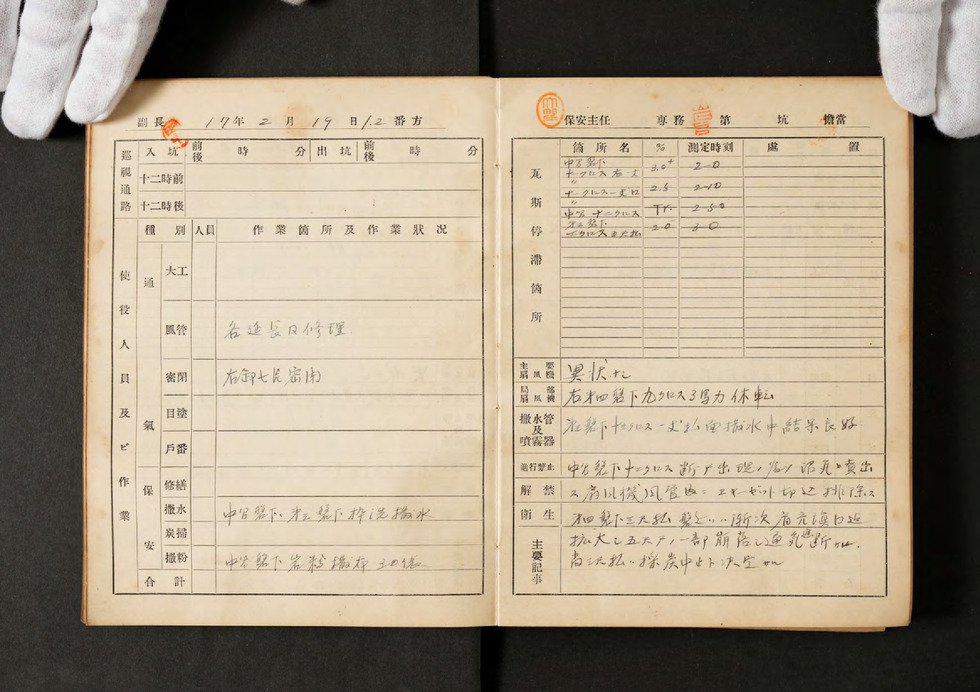 副長 17年 2月 19日 12番方
巡視通路
入坑 前後 時 分 出坑 前後 時 分
十二時前
十二時後
使役人員及ビ作業
種別 人員 作業箇所及作業状況
通氣
大工
風管 各延長及修理.
密閉 右卸七片密閉
目塗
戸番
保安
修繕
撒水 中台盤下、第三盤下枠洗撒水
炭掃
撒粉 中台盤下岩粉撒布 30袋
合計
保安主任 専務 第 坑 擔當
瓦斯停滞箇所
箇所名 % 測定時刻 處置
中台盤下
十一クロス右一丈 3.0+ 2-0
〃
十一クロス一丈口 2.5 2-10
〃
中台十二クロス Tr. 2-50
第三盤下
二クロス三尺払 2.0 3-0
主要扇風機 異状ナシ
局部扇風機 右第四盤下九クロス3馬力休転
撒水管及噴霧器 第三盤下十クロス一丈払面撒水中結果良好.
進行禁止 中台盤下十二クロス断戸出現ノ為ノ沼気噴出
解禁 ス扇風機風管内ニエキゼット切込排除ス
衛生 第四盤下三尺払
主要記事
拡大シ五尺戸ノ一部崩落シ通気遮断
尚三尺払ハ採炭中止ト決定